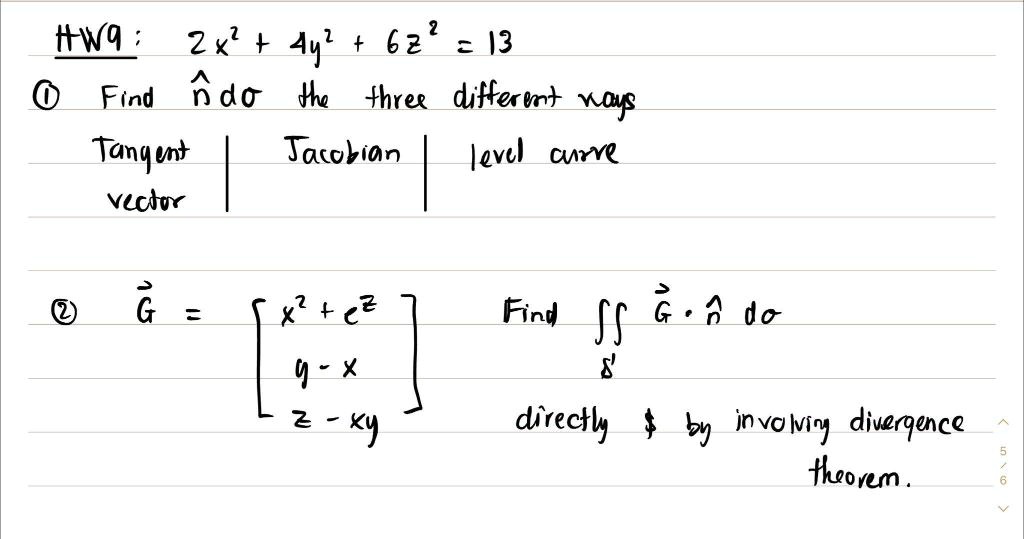 HW9: 2x² + 4y² + 6z² = 13
① Find n̂ dσ the three different ways
Tangent vector | Jacobian | level curve
② G⃗ = [ x² + e^z
y - x
z - xy ]
Find ∬_S G⃗ · n̂ dσ
directly $ by involving divergence
theorem.
5
/
6